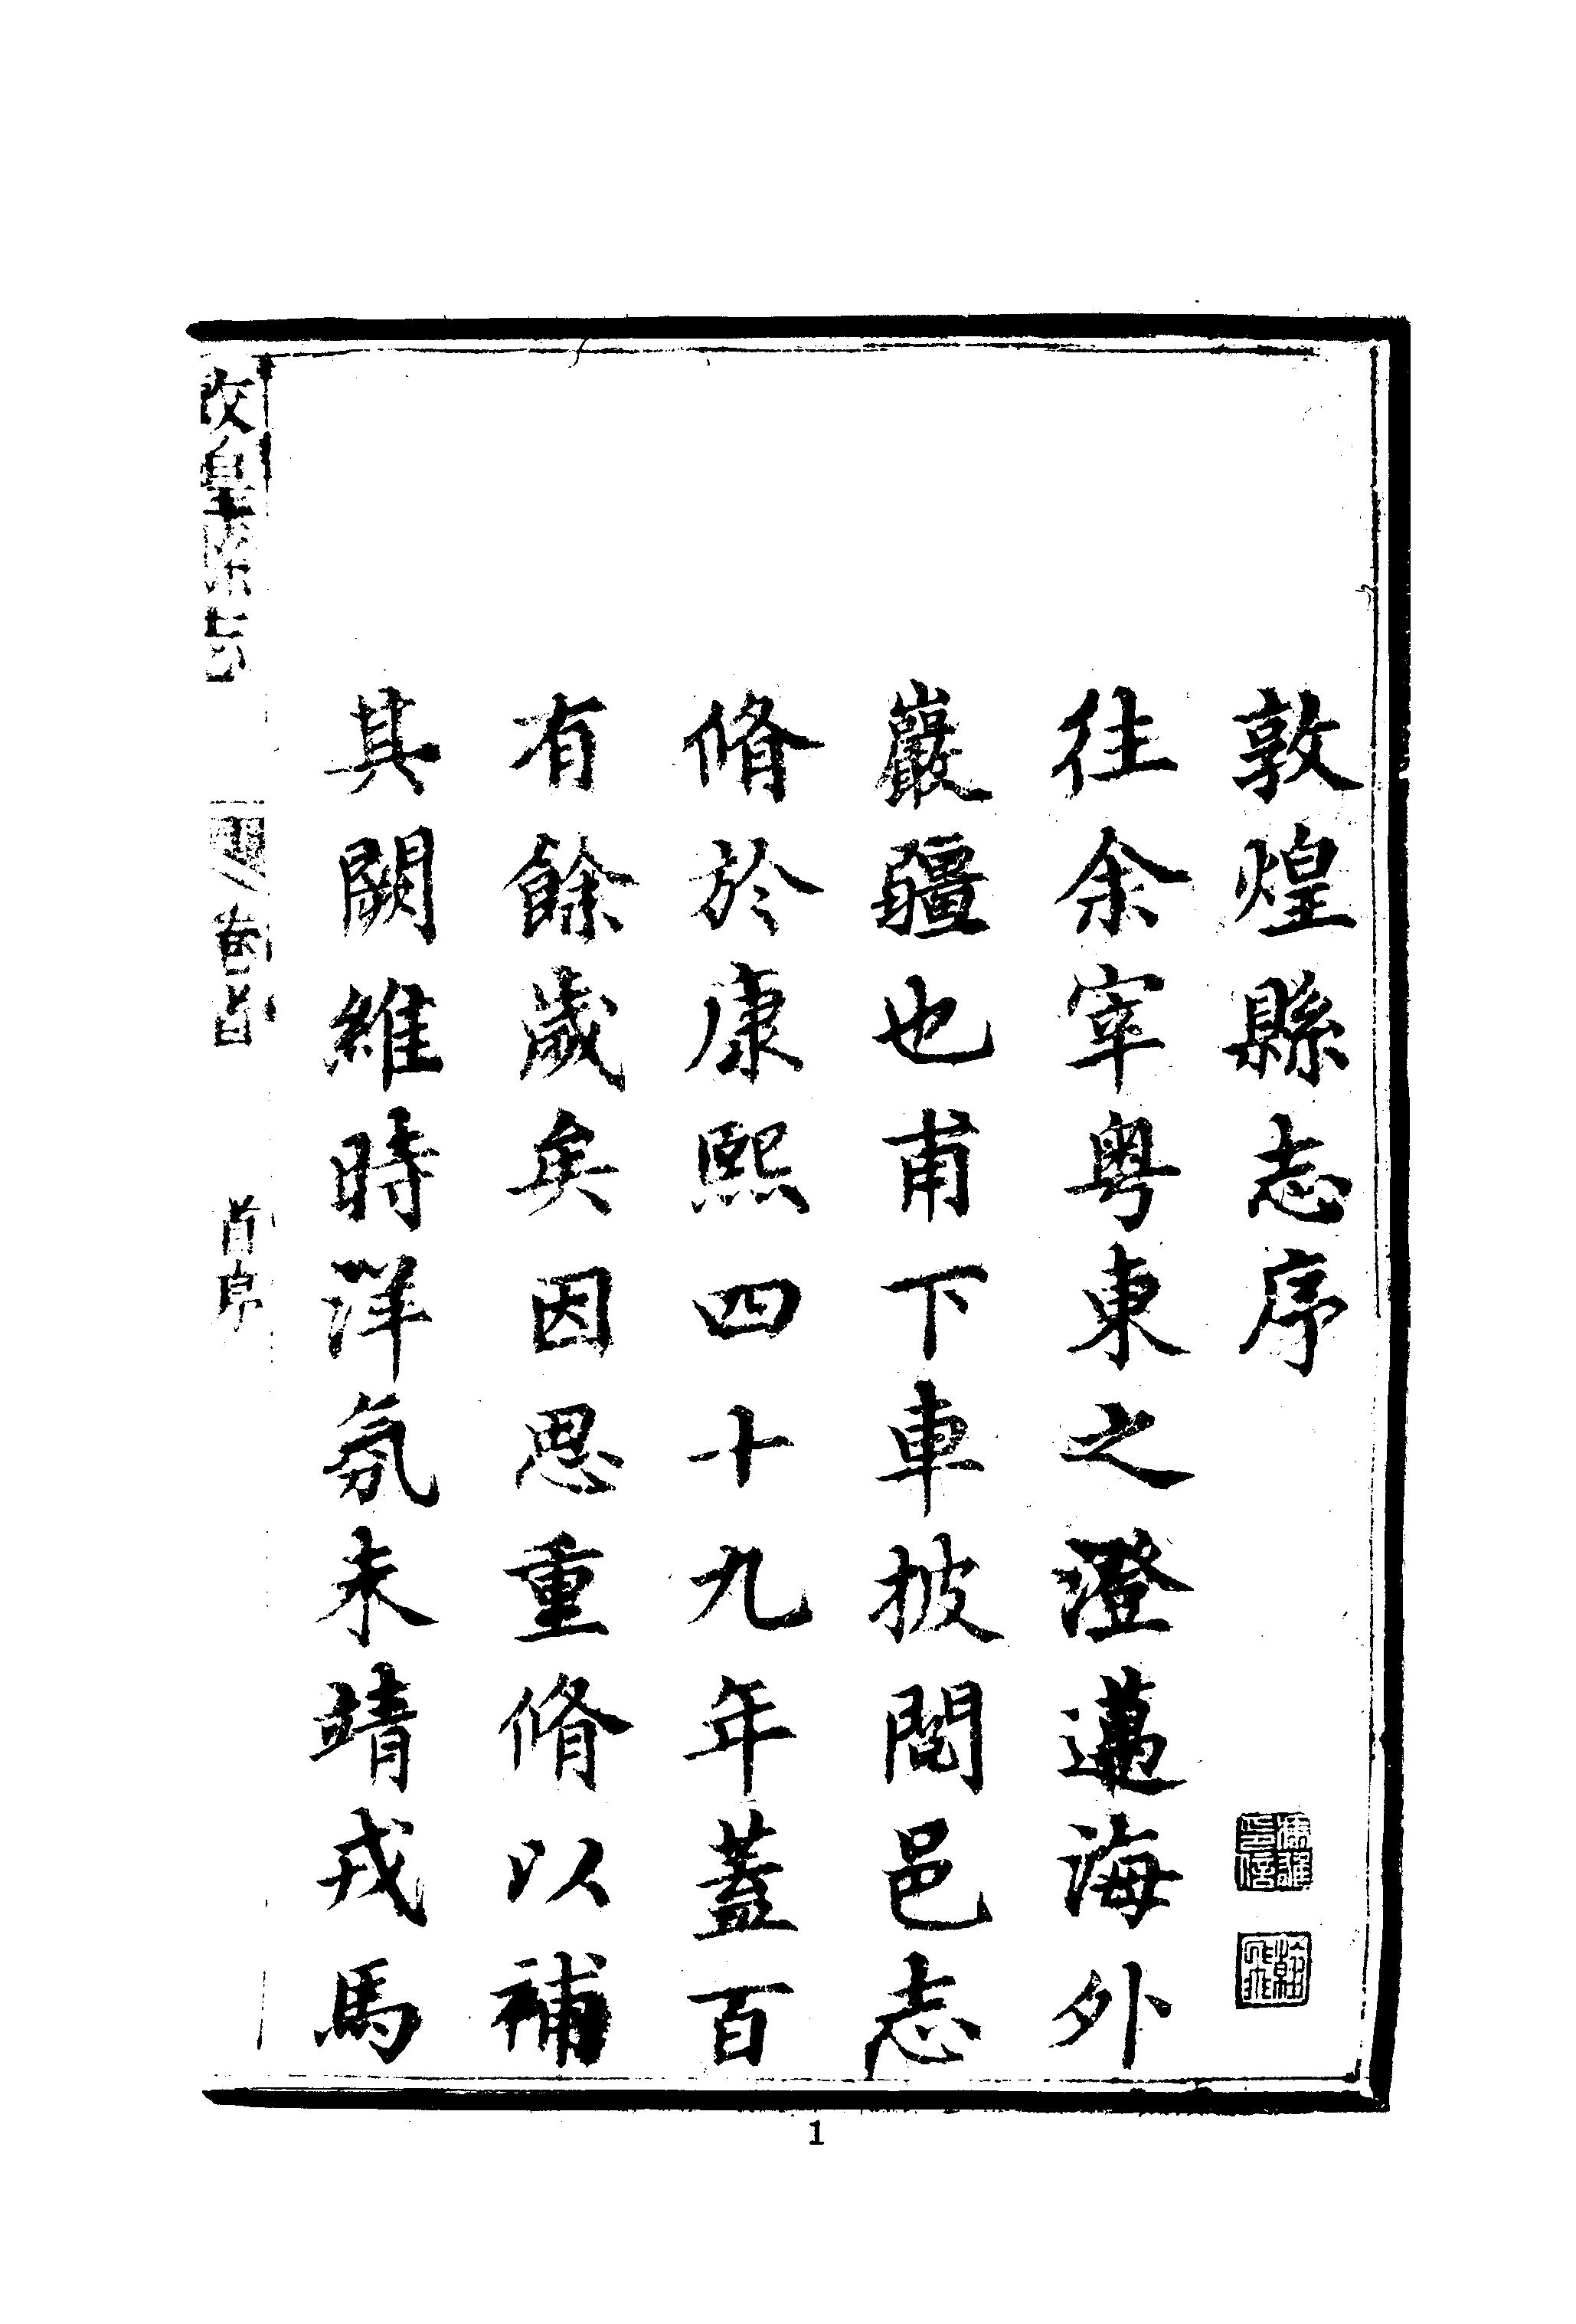 敦煌縣志序
往余宰粤東之澄邁海外
巖疆也甫下車披閱邑志
脩於康熙四十九年蓋百
有餘歲矣因思重脩以補
其闕維時洋氛未靖戎馬
敦煌縣志
卷首
首序
1